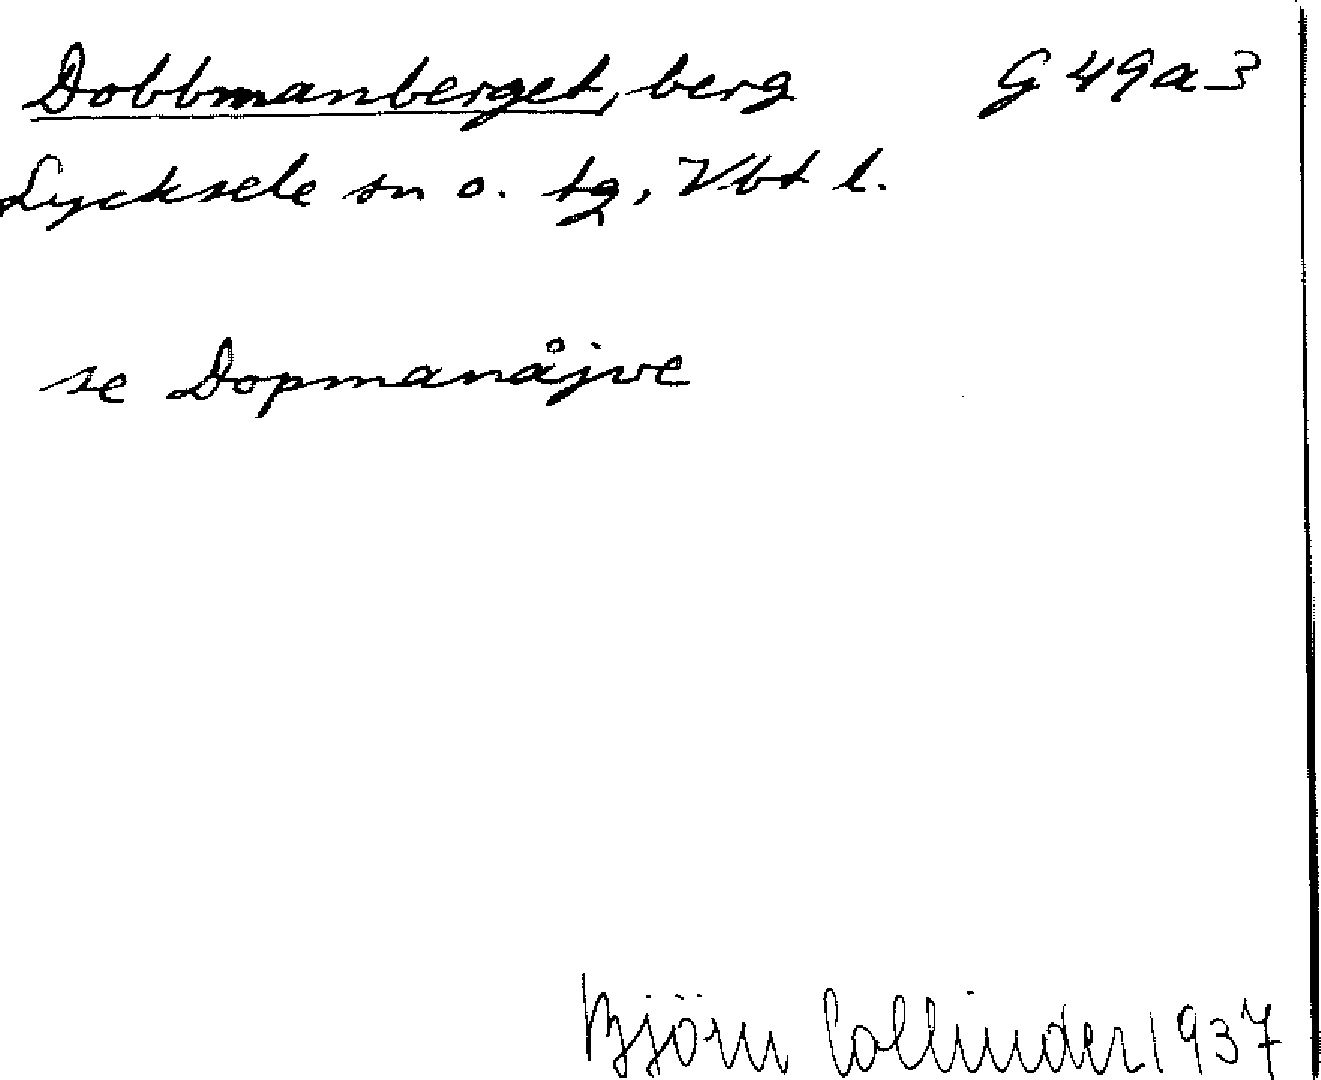 Dobbmanberget, berg G 49a3
Lycksele sn o. tg, Vbt l.
se Dopmanåjve
Björn Collinder 1937